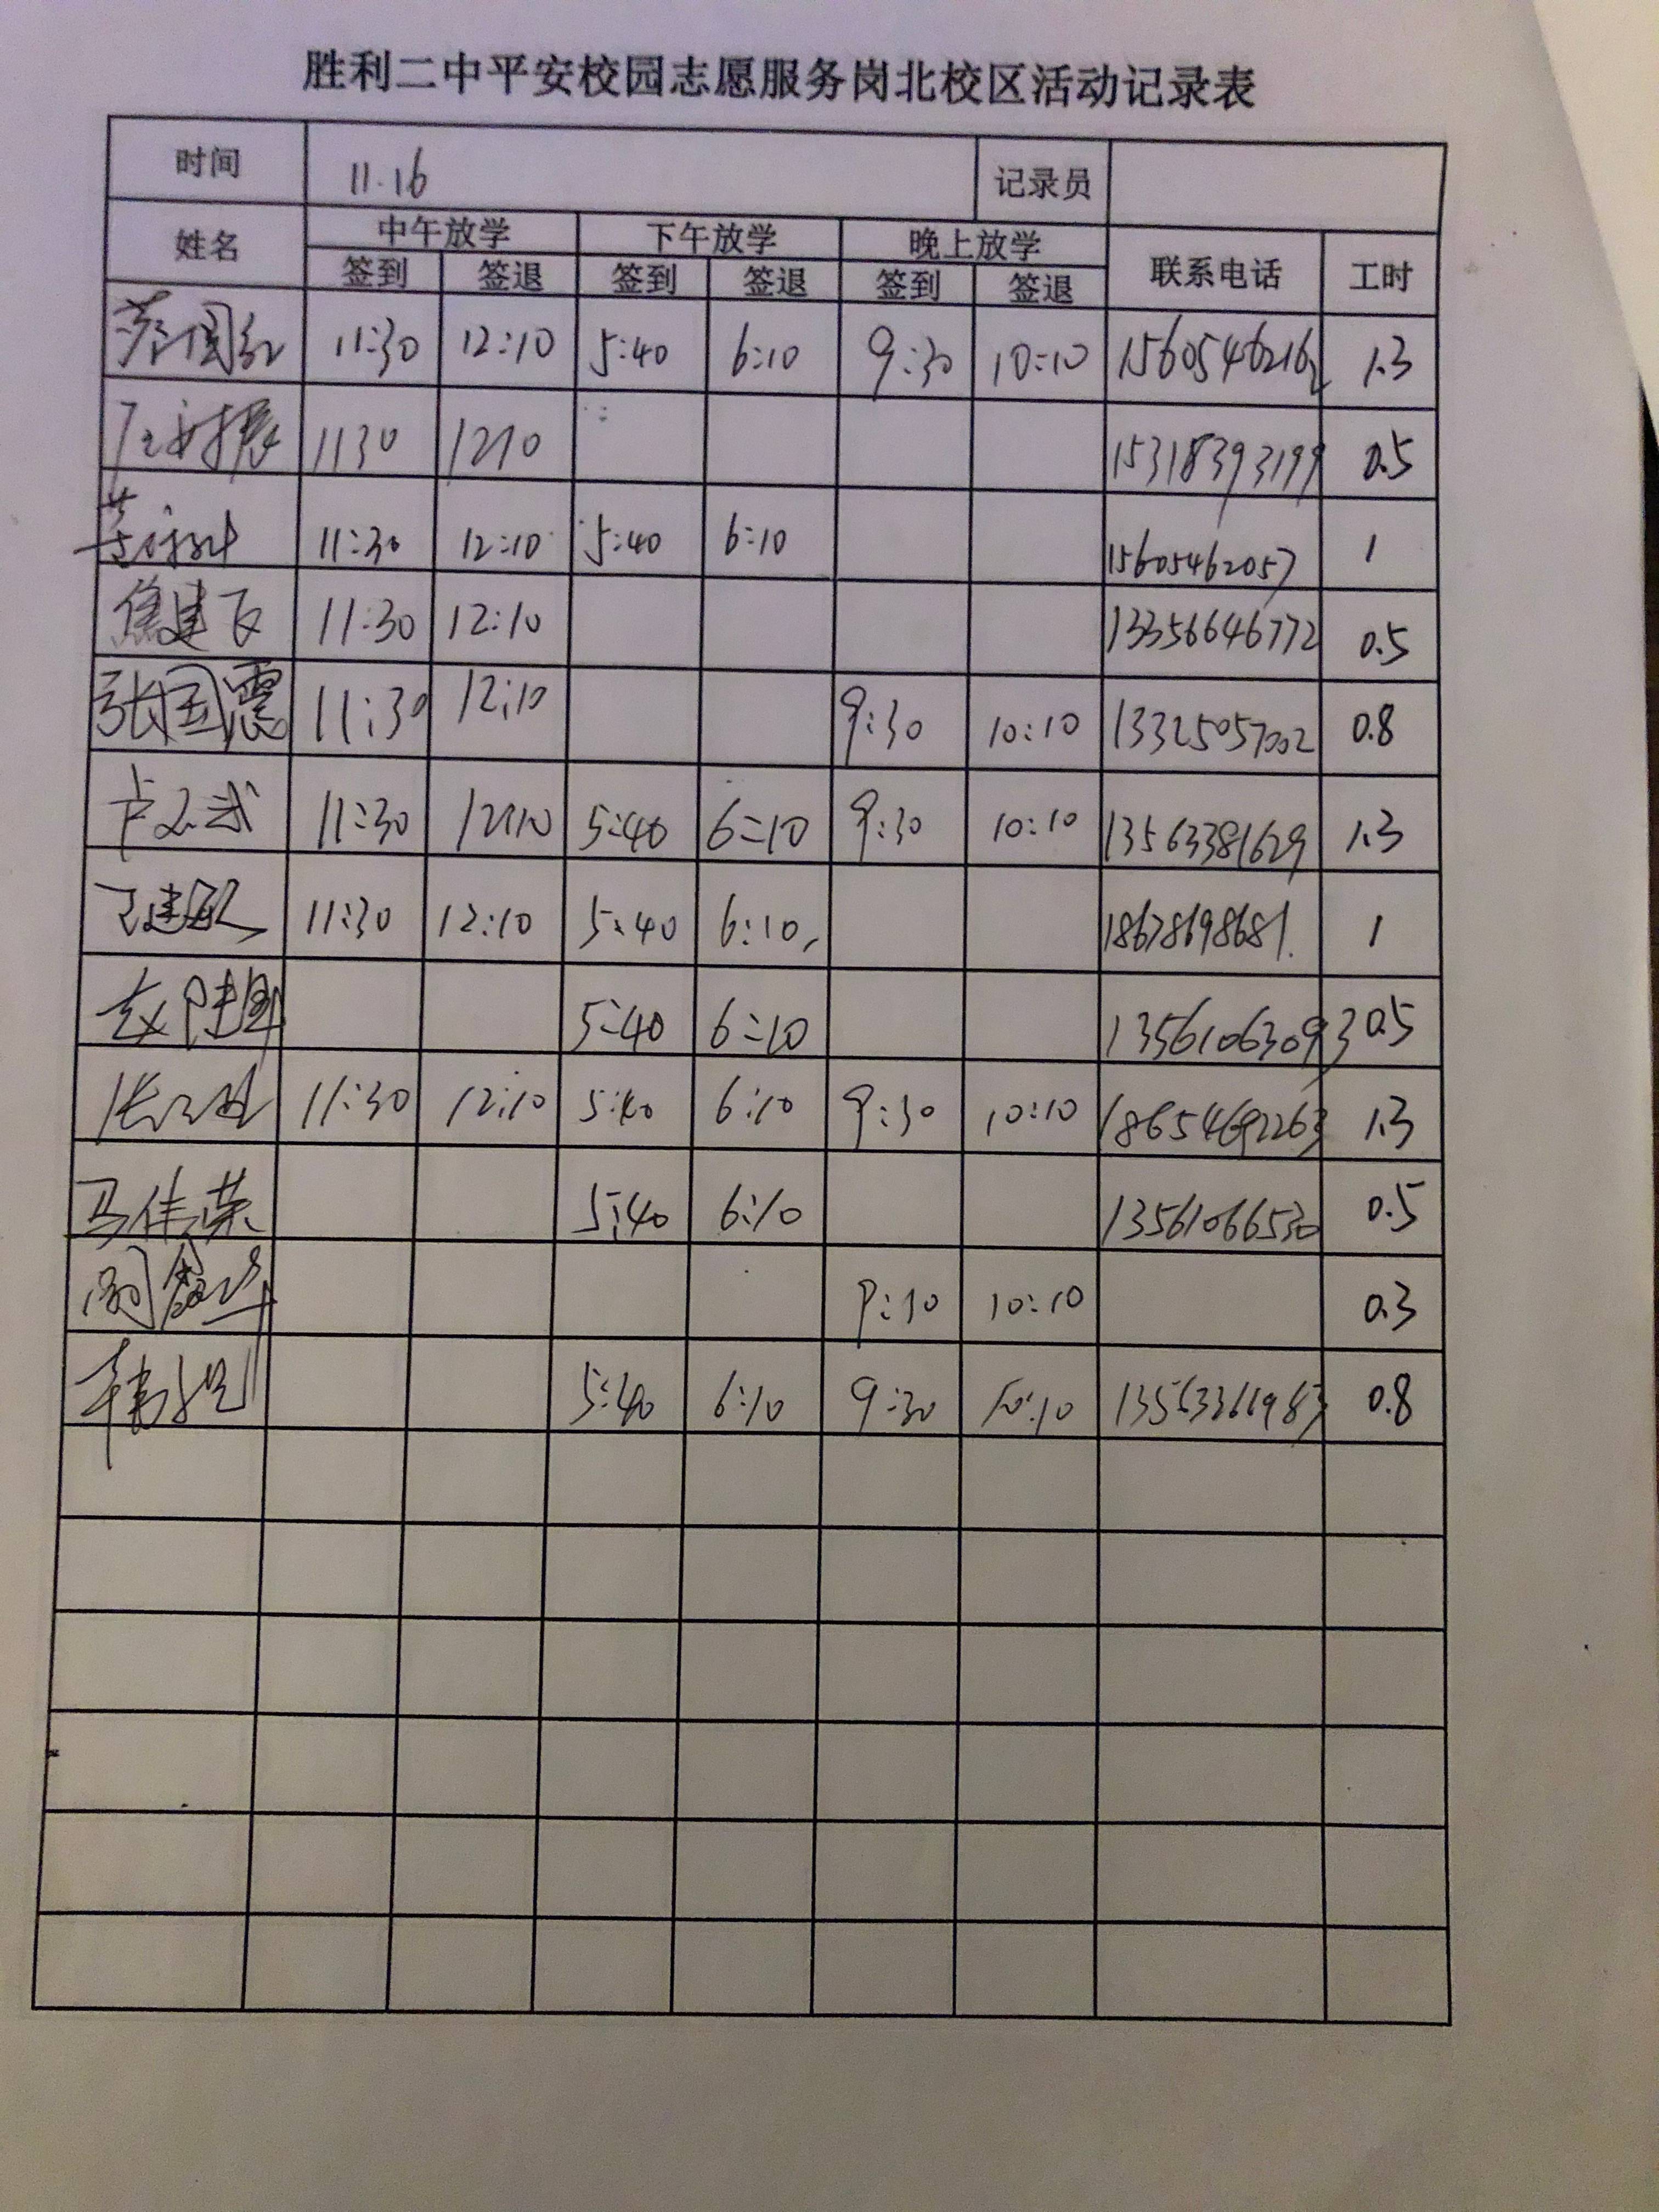 胜利二中平安校园志愿服务岗北校区活动记录表
时间 11.16 记录员
姓名 中午放学 下午放学 晚上放学 联系电话 工时
签到 签退 签到 签退 签到 签退
11:30 12:10 5:40 6:10 9:30 10:10 15605462162 1.3
1130 1210 15318393199 0.5
11:30 12:10 5:40 6:10 15605462057 1
焦建飞 11:30 12:10 13356646772 0.5
张国震 11:30 12:10 9:30 10:10 13325057002 0.8
11:30 12:10 5:40 6:10 9:30 10:10 13563381629 1.3
11:30 12:10 5:40 6:10 18678698681 1
5:40 6:10 13561063093 0.5
11:30 12:10 5:40 6:10 9:30 10:10 18654692263 1.3
马佳荣 5:40 6:10 13561066530 0.5
9:30 10:10 0.3
5:40 6:10 9:30 10:10 0.8